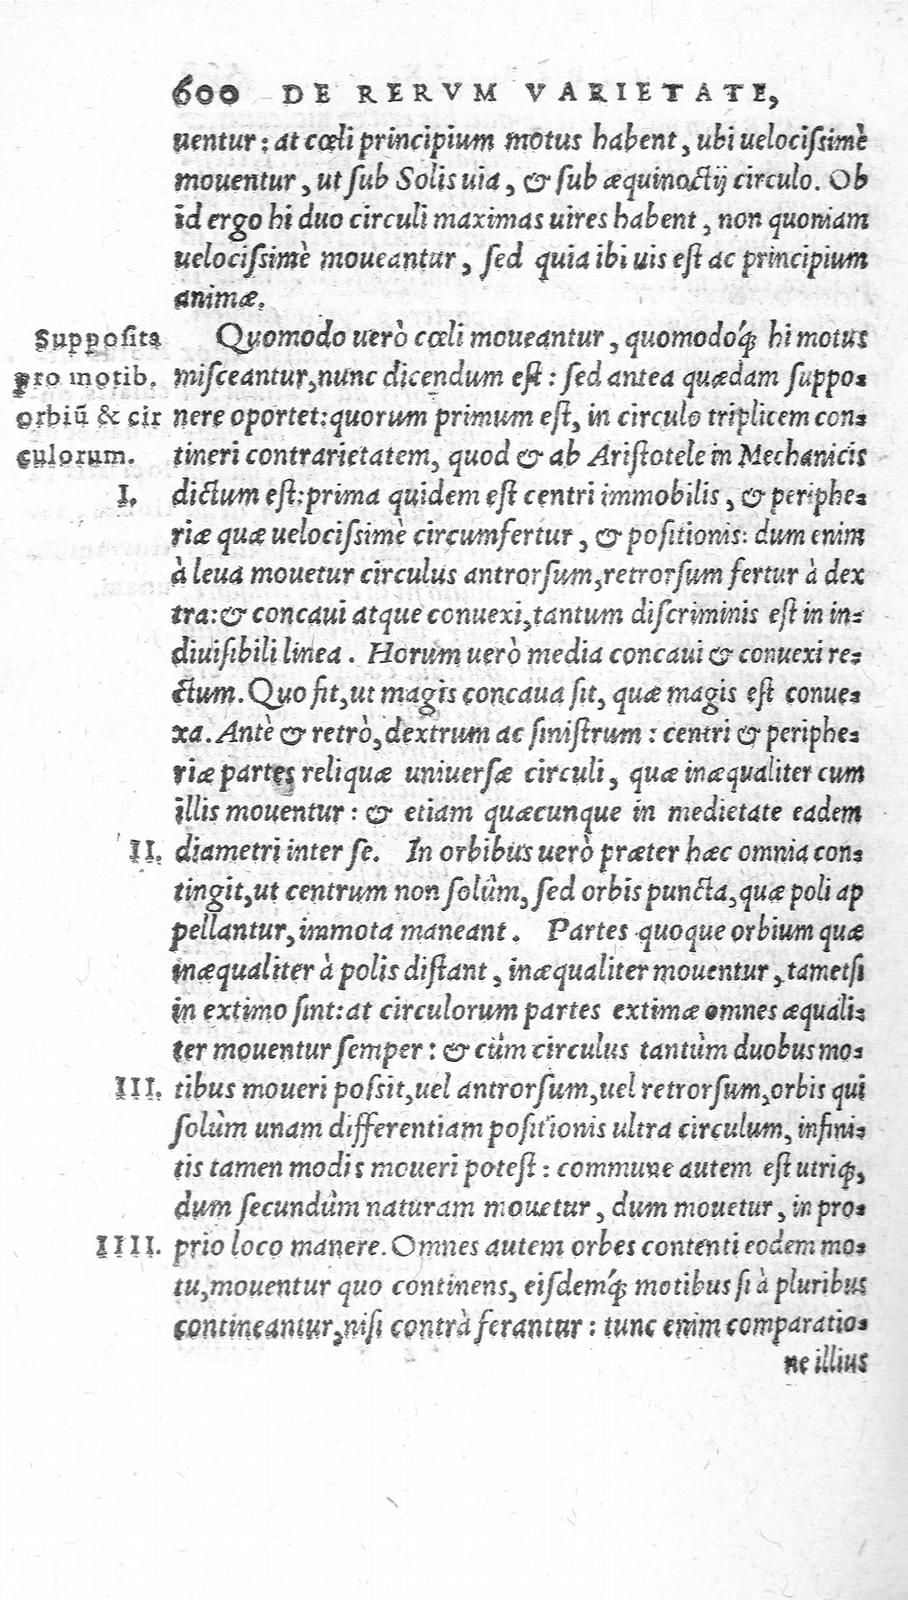 600 DE RERVM VARIETATE,
uentur: at cœli principium motus habent, ubi uelocißimè
mouentur, ut ſub Solis uia, & ſub æquinoctij circulo. Ob
id ergo hi duo circuli maximas uires habent, non quoniam
uelociſsimè moueantur, ſed quia ibi uis eſt ac principium
animæ.
Quomodo uerò cœli moueantur, quomodoq́; hi motus
Suppoſita
miſceantur, nunc dicendum eſt: ſed antea quædam ſuppo-
pro motib.
nere oportet: quorum primum eſt, in circulo triplicem con-
orbiū & cir
tineri contrarietatem, quod & ab Ariſtotele in Mechanicis
culorum.
I.
dictum eſt: prima quidem eſt centri immobilis, & periphe-
riæ quæ uelociſsimè circumfertur, & poſitionis: dum enim
à leua mouetur circulus antrorſum, retrorſum fertur à dex
tra: & concaui atque conuexi, tantum diſcriminis eſt in in-
diuiſibili linea. Horum uerò media concaui & conuexi re-
ctum. Quo fit, ut magis concaua ſit, quæ magis eſt conue-
xa. Antè & retrò, dextrum ac ſiniſtrum: centri & periphe-
riæ partes reliquæ uniuerſæ circuli, quæ inæqualiter cum
illis mouentur: & etiam quæcunque in medietate eadem
II.
diametri inter ſe. In orbibus uerò præter hæc omnia con-
tingit, ut centrum non ſolùm, ſed orbis puncta, quæ poli ap
pellantur, immota maneant. Partes quoque orbium quæ
inæqualiter à polis diſtant, inæqualiter mouentur, tametſi
in extimo ſint: at circulorum partes extimæ omnes æquali-
ter mouentur ſemper: & cùm circulus tantùm duobus mo-
III.
tibus moueri poſsit, uel antrorſum, uel retrorſum, orbis qui
ſolùm unam differentiam poſitionis ultra circulum, infini-
tis tamen modis moueri poteſt: commune autem eſt utriq;,
dum ſecundùm naturam mouetur, dum mouetur, in pro-
IIII.
prio loco manere. Omnes autem orbes contenti eodem mo-
tu, mouentur quo continens, eiſdemq́; motibus ſi à pluribus
contineantur, niſi contrà ferantur: tunc enim comparatio-
ne illius